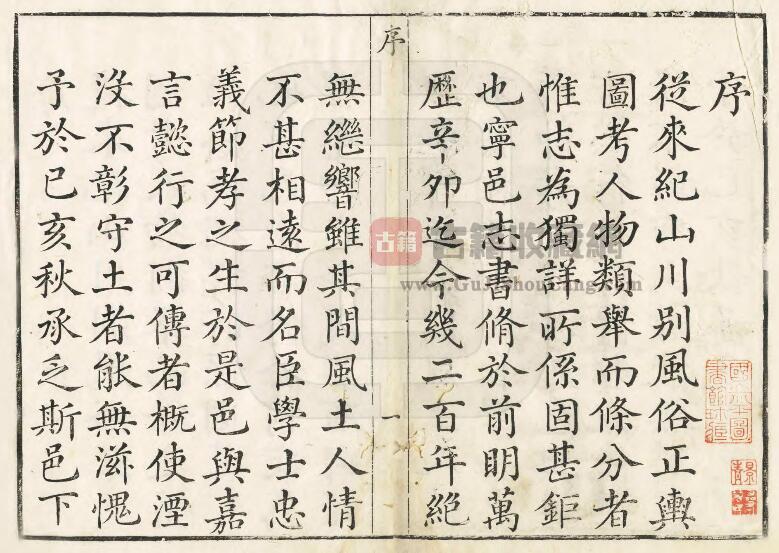 序
從來紀山川別風俗正輿
圖考人物類舉而條分者
惟志為獨詳所係固甚鉅
也寧邑志書脩於前明萬
歷辛卯迄今幾二百年絕
序
一
無繼響雖其間風土人情
不甚相遠而名臣學士忠
義節孝之生於是邑與嘉
言懿行之可傳者概使湮
沒不彰守土者能無滋愧
予於己亥秋承乏斯邑下
古籍
古籍收藏網